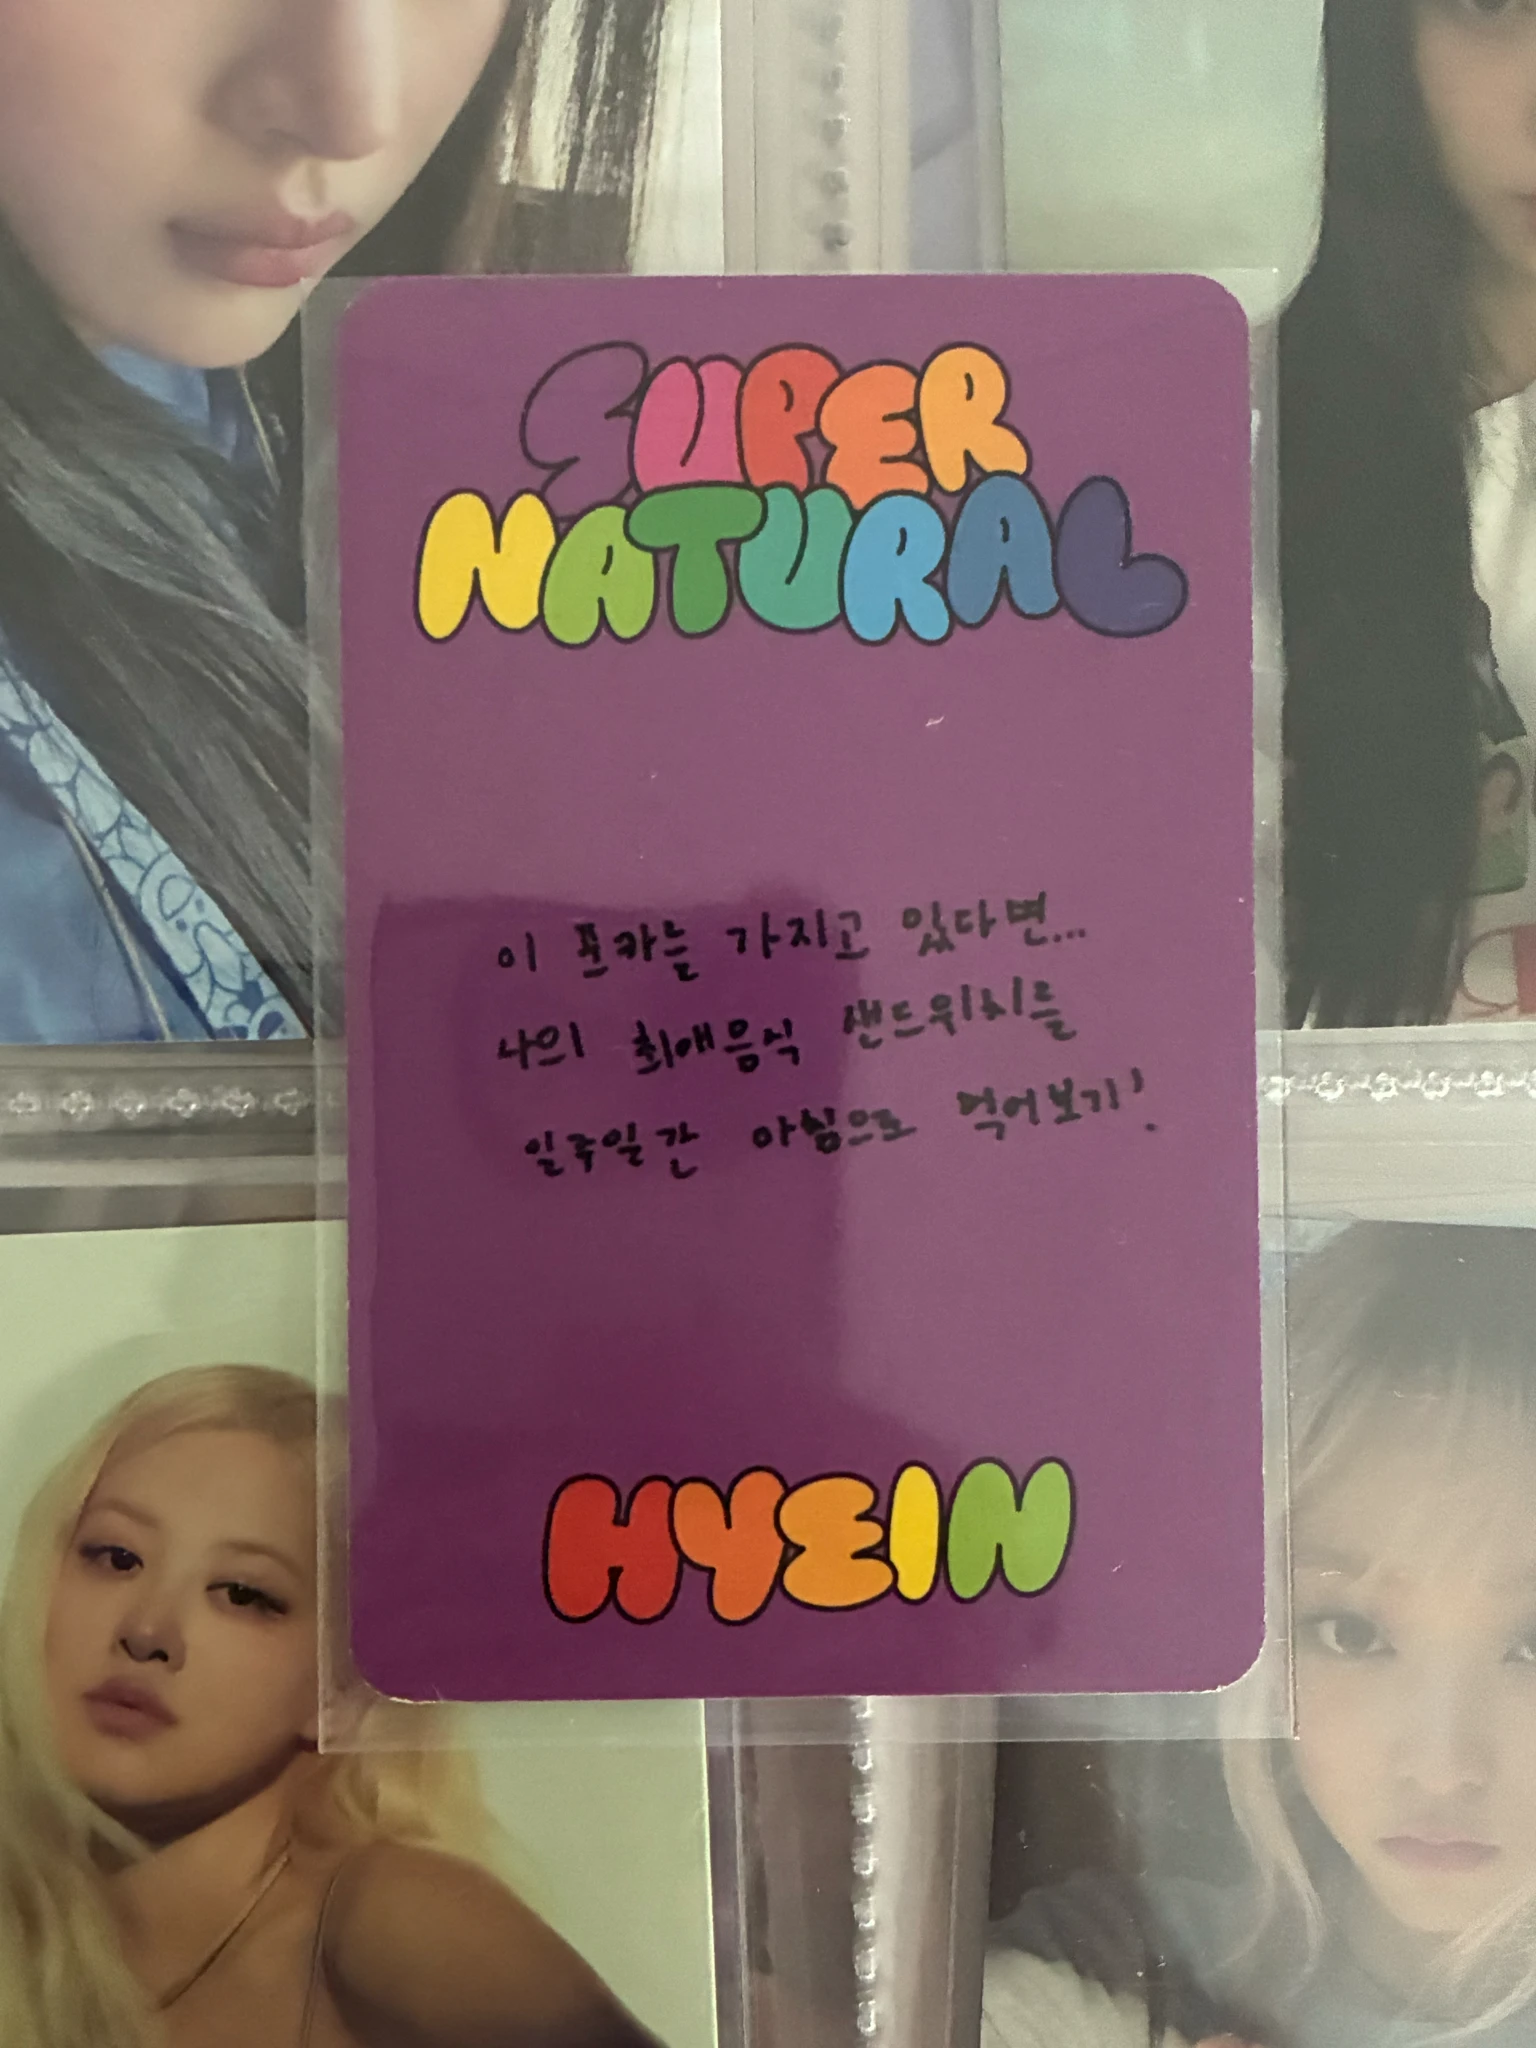 SUPER
NATURAL
이 포카를 가지고 있다면...
나의 최애음식 샌드위치를
일주일간 아침으로 먹어보기!
HYEIN